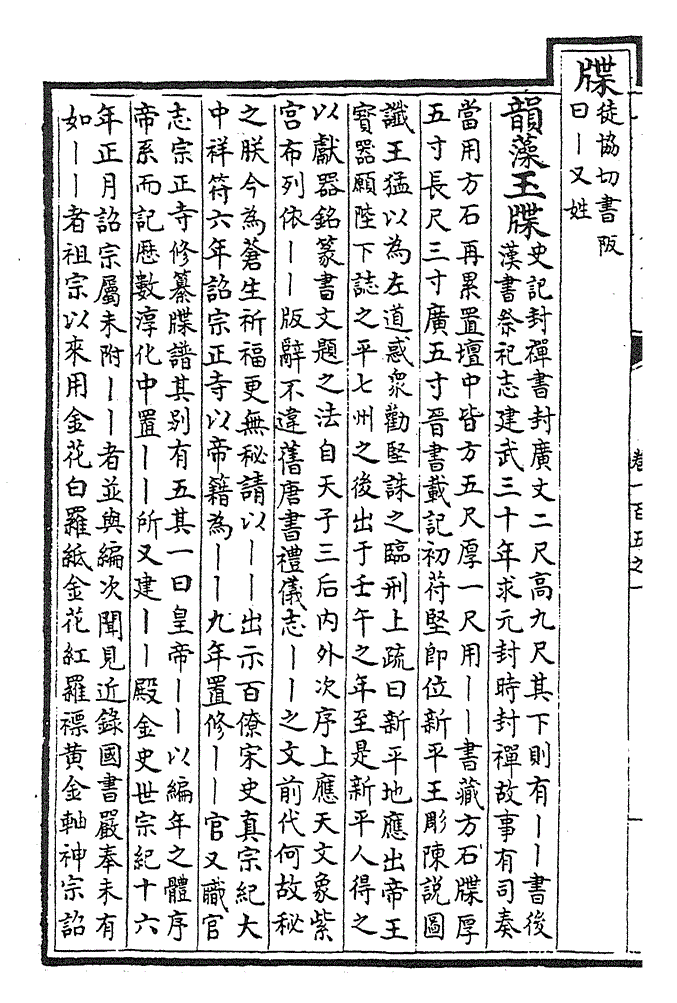 牒
徒協切書版
曰丨又姓
韻藻玉牒
史記封禪書封廣丈二尺高九尺其下則有丨丨書後
漢書祭祀志建武三十年求元封時封禪故事有司奏
當用方石再累置壇中皆方五尺厚一尺用丨丨書藏方石牒厚
五寸長尺三寸廣五寸晉書載記初苻堅即位新平王彫陳說圖
讖王猛以為左道惑衆勸堅誅之臨刑上疏曰新平地應出帝王
寳器願陛下誌之平七州之後出于壬午之年至是新平人得之
以獻器銘篆書文題之法自天子三后内外次序上應天文象紫
宮布列依丨丨版辭不違舊唐書禮儀志丨丨之文前代何故秘
之朕今為蒼生祈福更無秘請以丨丨出示百僚宋史真宗紀大
中祥符六年詔宗正寺以帝籍為丨丨九年置修丨丨官又職官
志宗正寺修纂牒譜其别有五其一曰皇帝丨丨以編年之體序
帝系而記歷數淳化中置丨丨所又建丨丨殿金史世宗紀十六
年正月詔宗屬未附丨丨者並與編次聞見近錄國書嚴奉未有
如丨丨者祖宗以來用金花白羅紙金花紅羅褾黄金軸神宗詔